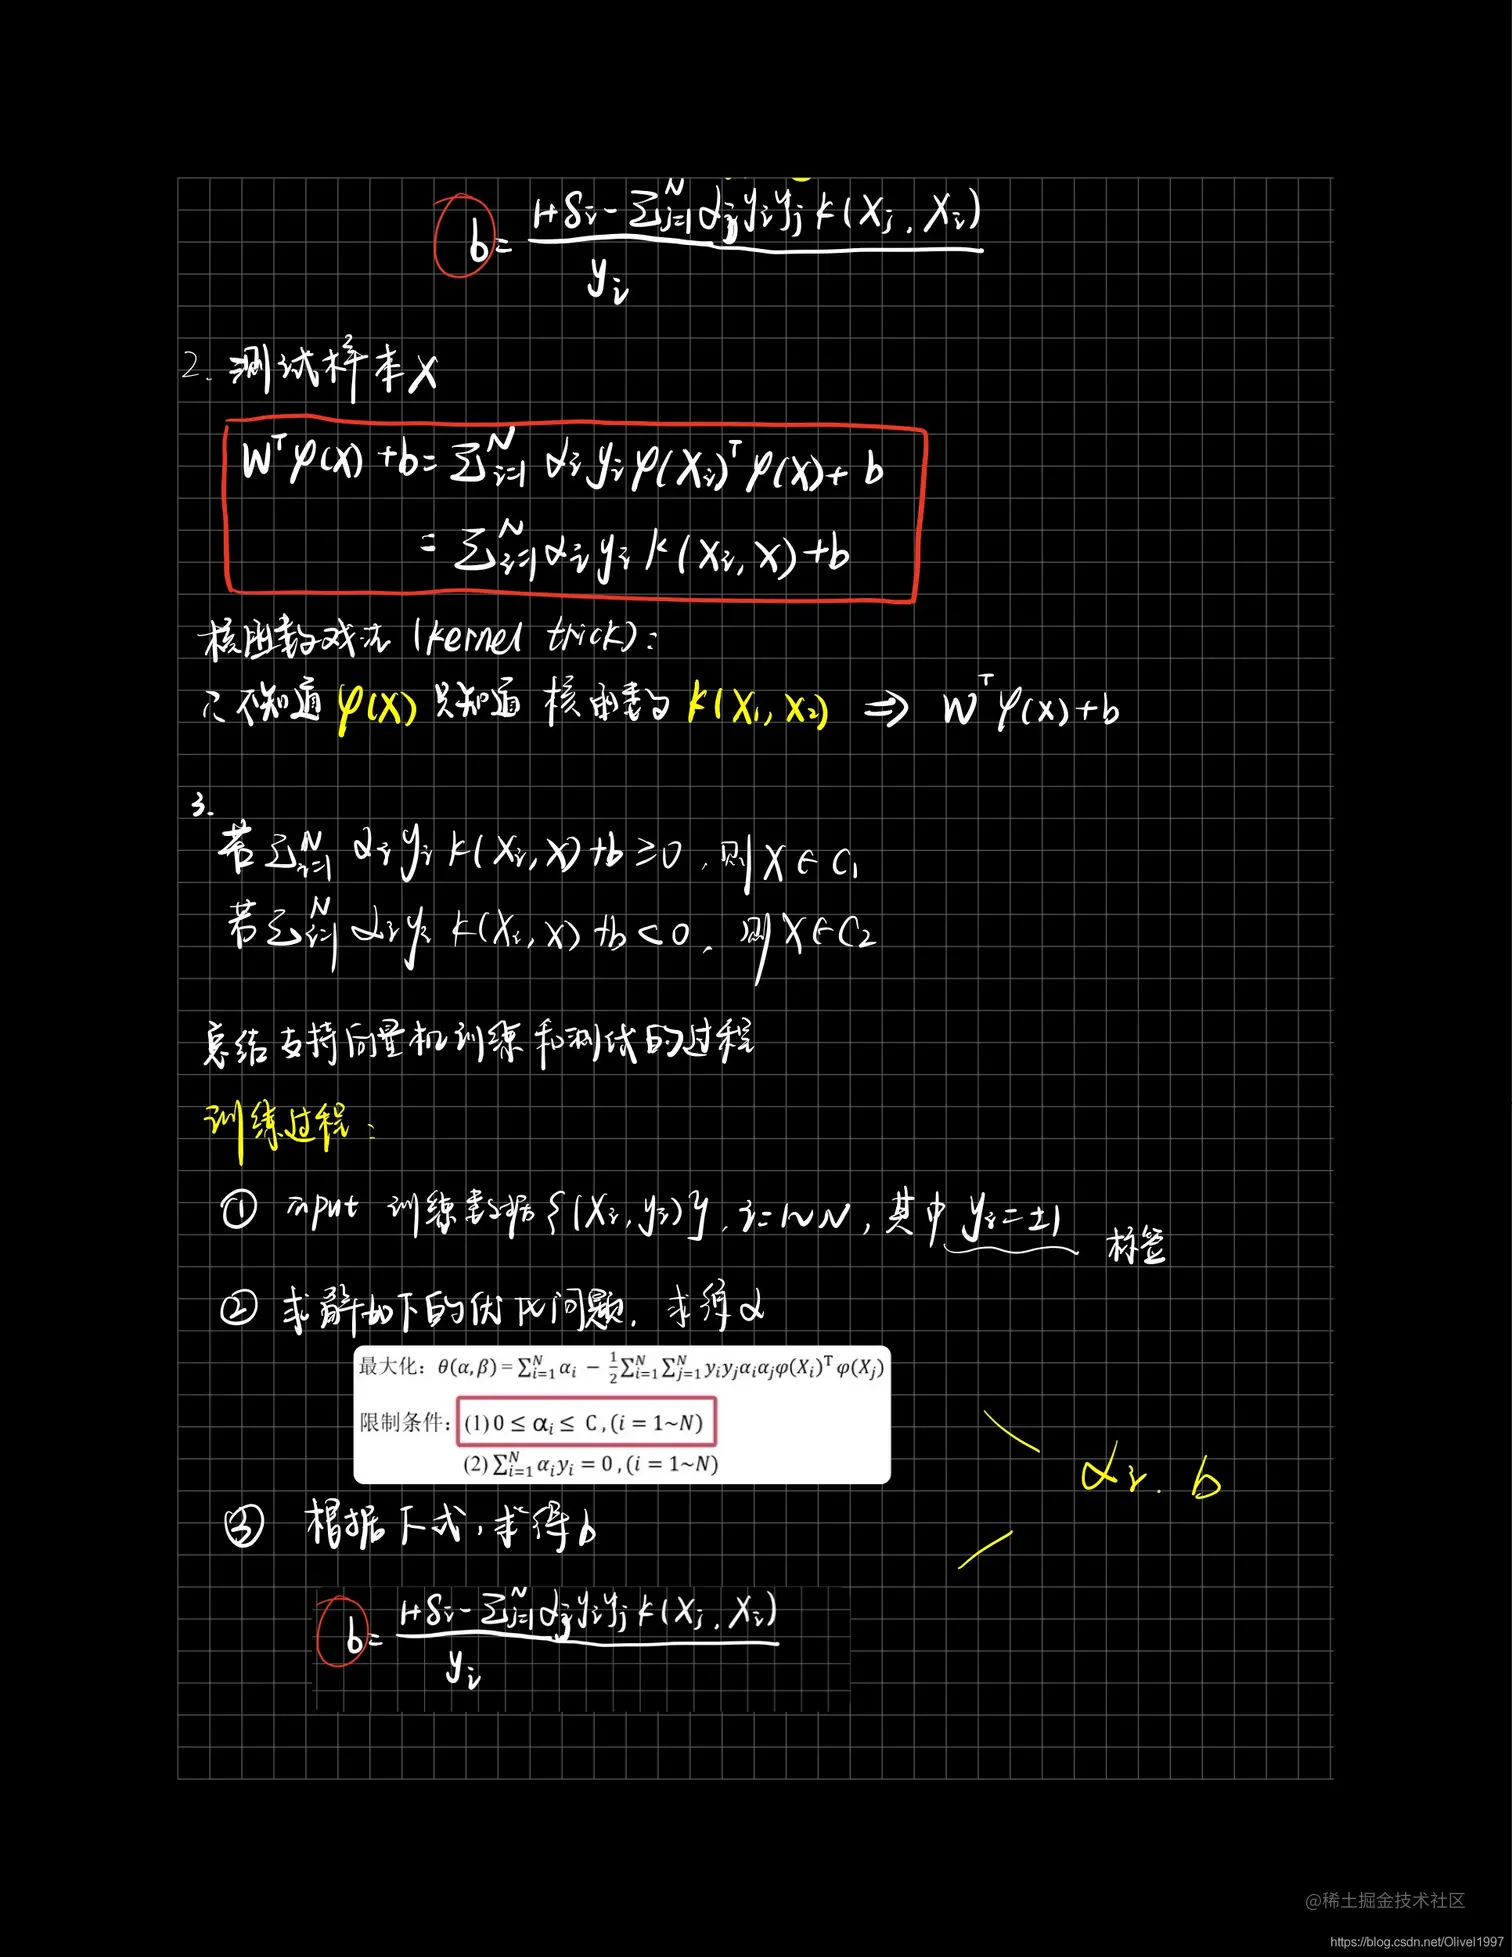 b = (1+δi - Σ_{j=1}^N αj yi yj K(Xj, Xi)) / yi
2. 测试样本X
W^T φ(X) + b = Σ_{i=1}^N αi yi φ(Xi)^T φ(X) + b
= Σ_{i=1}^N αi yi K(Xi, X) + b
核函数戏法 (kernel trick):
不知道 φ(X) 只知道 核函数 K(X1, X2) ⇒ W^T φ(X) + b
3.
若 Σ_{i=1}^N αi yi K(Xi, X) + b ≥ 0, 则 X ∈ C1
若 Σ_{i=1}^N αi yi K(Xi, X) + b < 0, 则 X ∈ C2
总结支持向量机训练和测试的过程
训练过程:
① input 训练数据 {(Xi, yi)}, i=1~N, 其中 yi=±1 标签
② 求解如下的优化问题, 求得α
最大化: θ(α,β) = Σ_{i=1}^N αi − 1/2 Σ_{i=1}^N Σ_{j=1}^N yiyjαiαjφ(Xi)^T φ(Xj)
限制条件: (1) 0 ≤ αi ≤ C, (i = 1~N)
(2) Σ_{i=1}^N αiyi = 0, (i = 1~N)
αi. b
③ 根据下式, 求得b
b = (1+δi - Σ_{j=1}^N αj yi yj K(Xj, Xi)) / yi
@稀土掘金技术社区
https://blog.csdn.net/Olivel1997